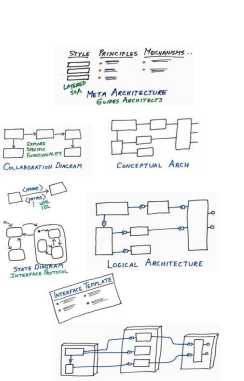 STYLE PRINCIPLES MECHANISMS..
LAYERED
SOA
META ARCHITECTURE
GUIDES ARCHITECTS
EXPLORE
SPECIFIC
FUNCTIONALITY
COLLABORATION DIAGRAM
CONCEPTUAL ARCH
<name>
UML
IDL
STATE DIAGRAM
INTERFACE PROTOCOL
LOGICAL ARCHITECTURE
INTERFACE TEMPLATE